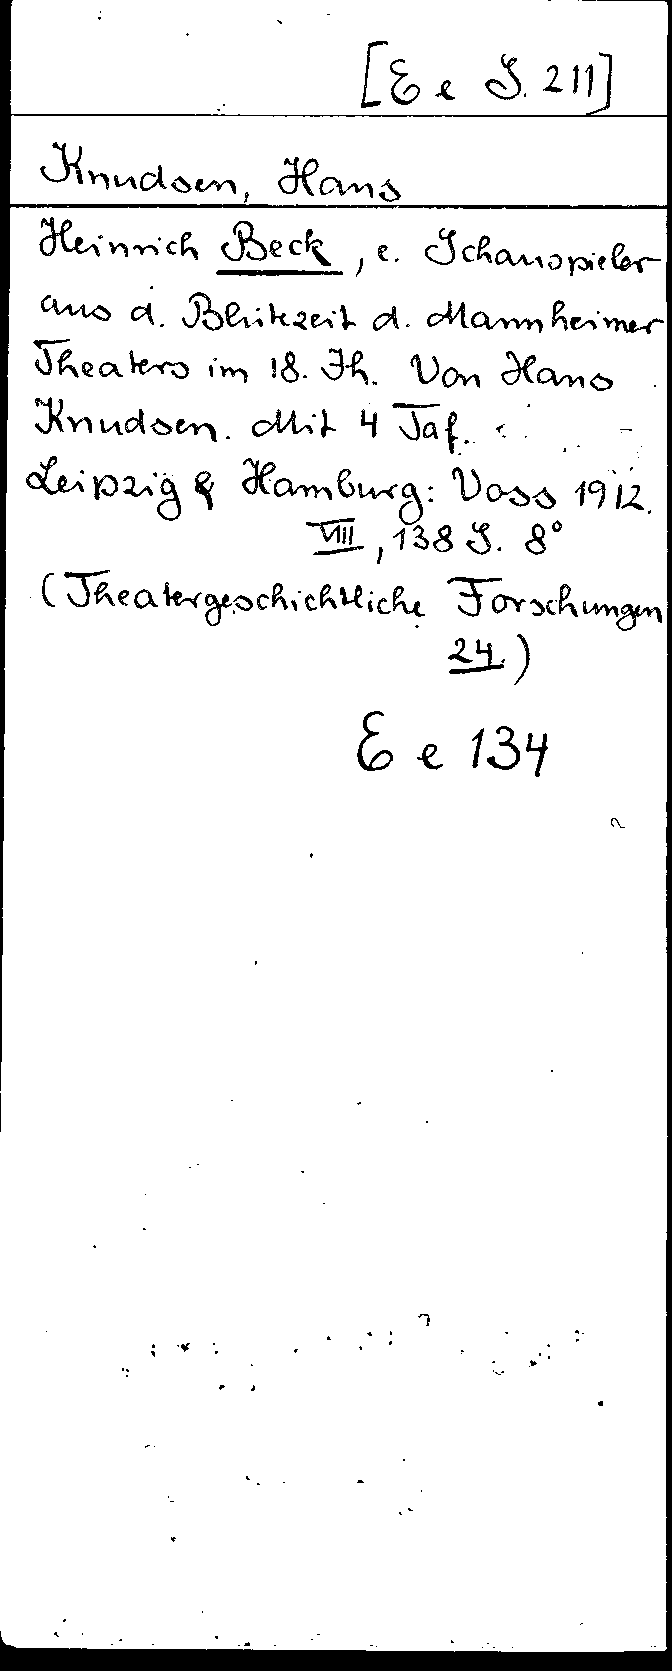 [E e S. 211]
Knudsen, Hans
Heinrich Beck, e. Schauspieler
aus d. Blütezeit d. Mannheimer
Theaters im 18. Jh. Von Hans
Knudsen. Mit 4 Taf.
Leipzig & Hamburg: Voss 1912.
VIII, 138 S. 8°
(Theatergeschichtliche Forschungen
24.)
E e 134